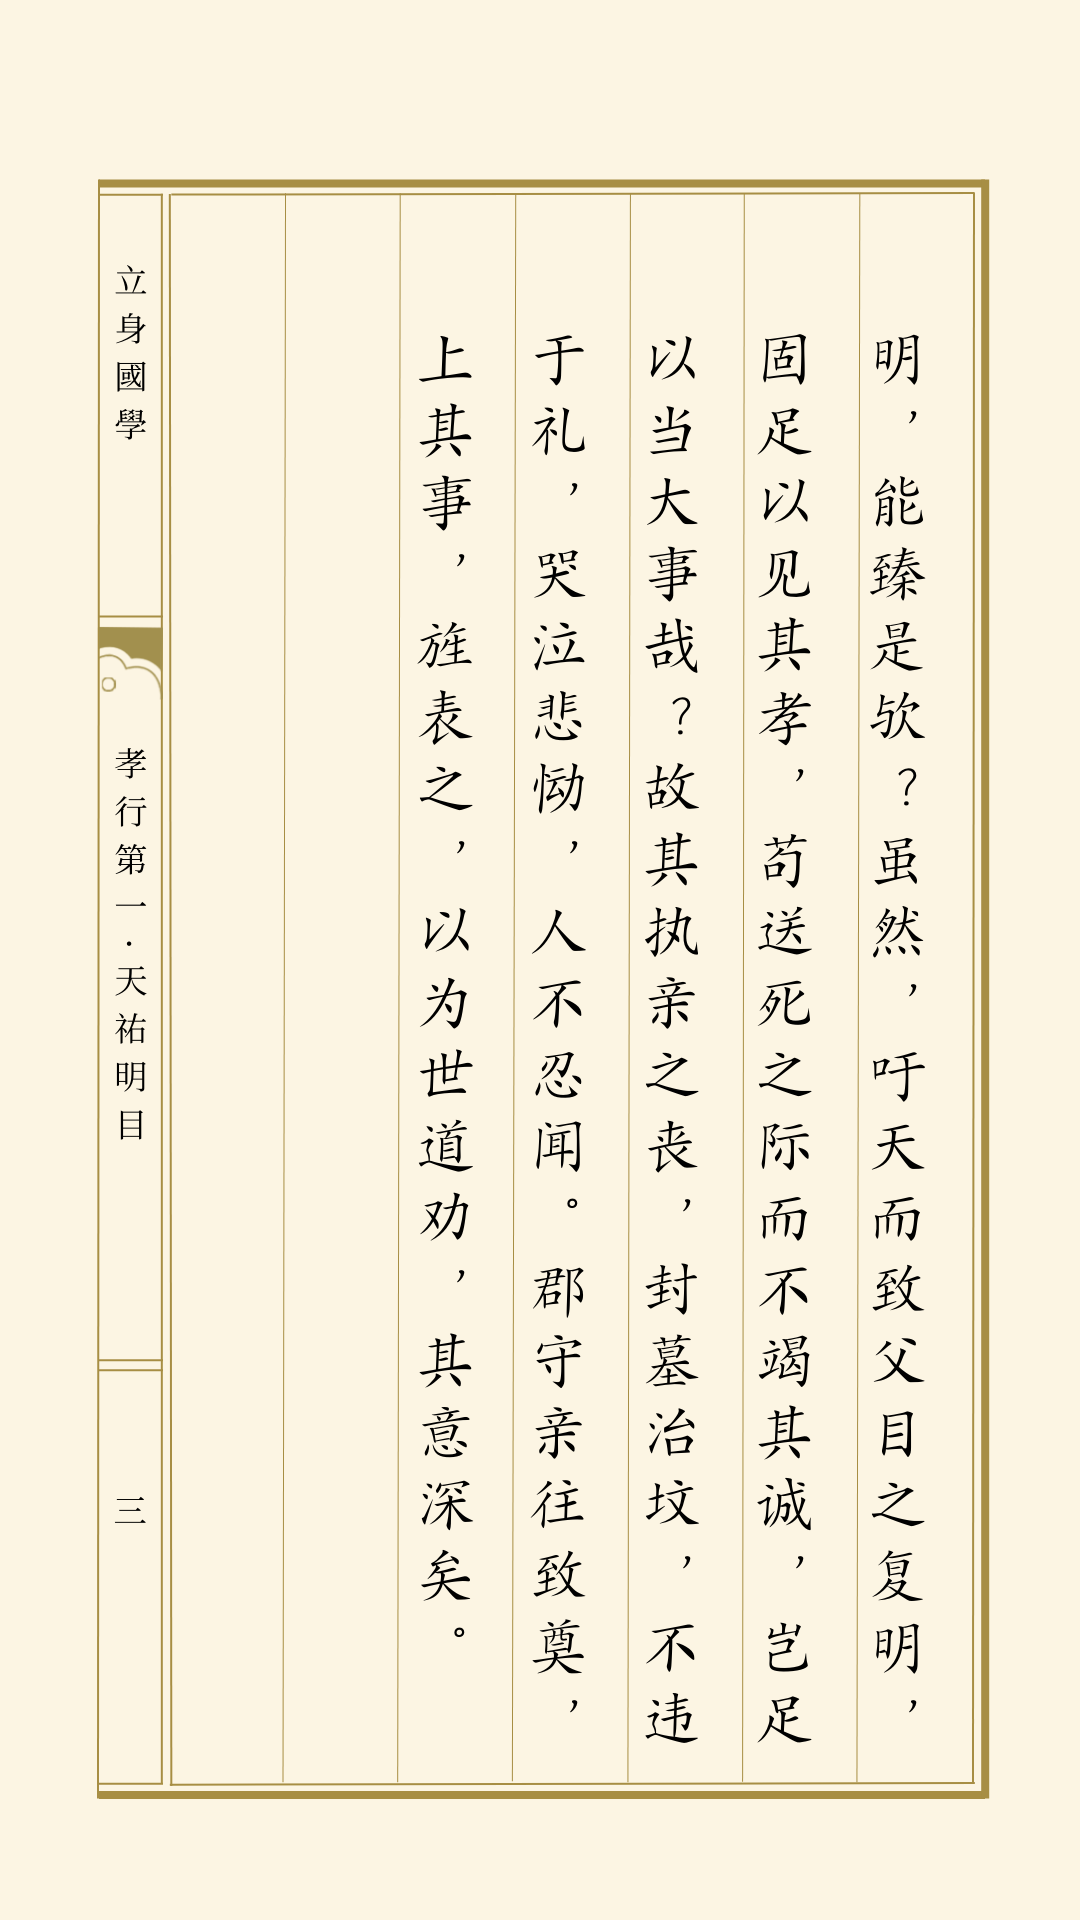 明，能臻是欤？虽然，吁天而致父目之复明，
固足以见其孝，苟送死之际而不竭其诚，岂足
以当大事哉？故其执亲之丧，封墓治坟，不违
于礼，哭泣悲恸，人不忍闻。郡守亲往致奠，
上其事，旌表之，以为世道劝，其意深矣。
立身國學
孝行第一·天祐明目
三